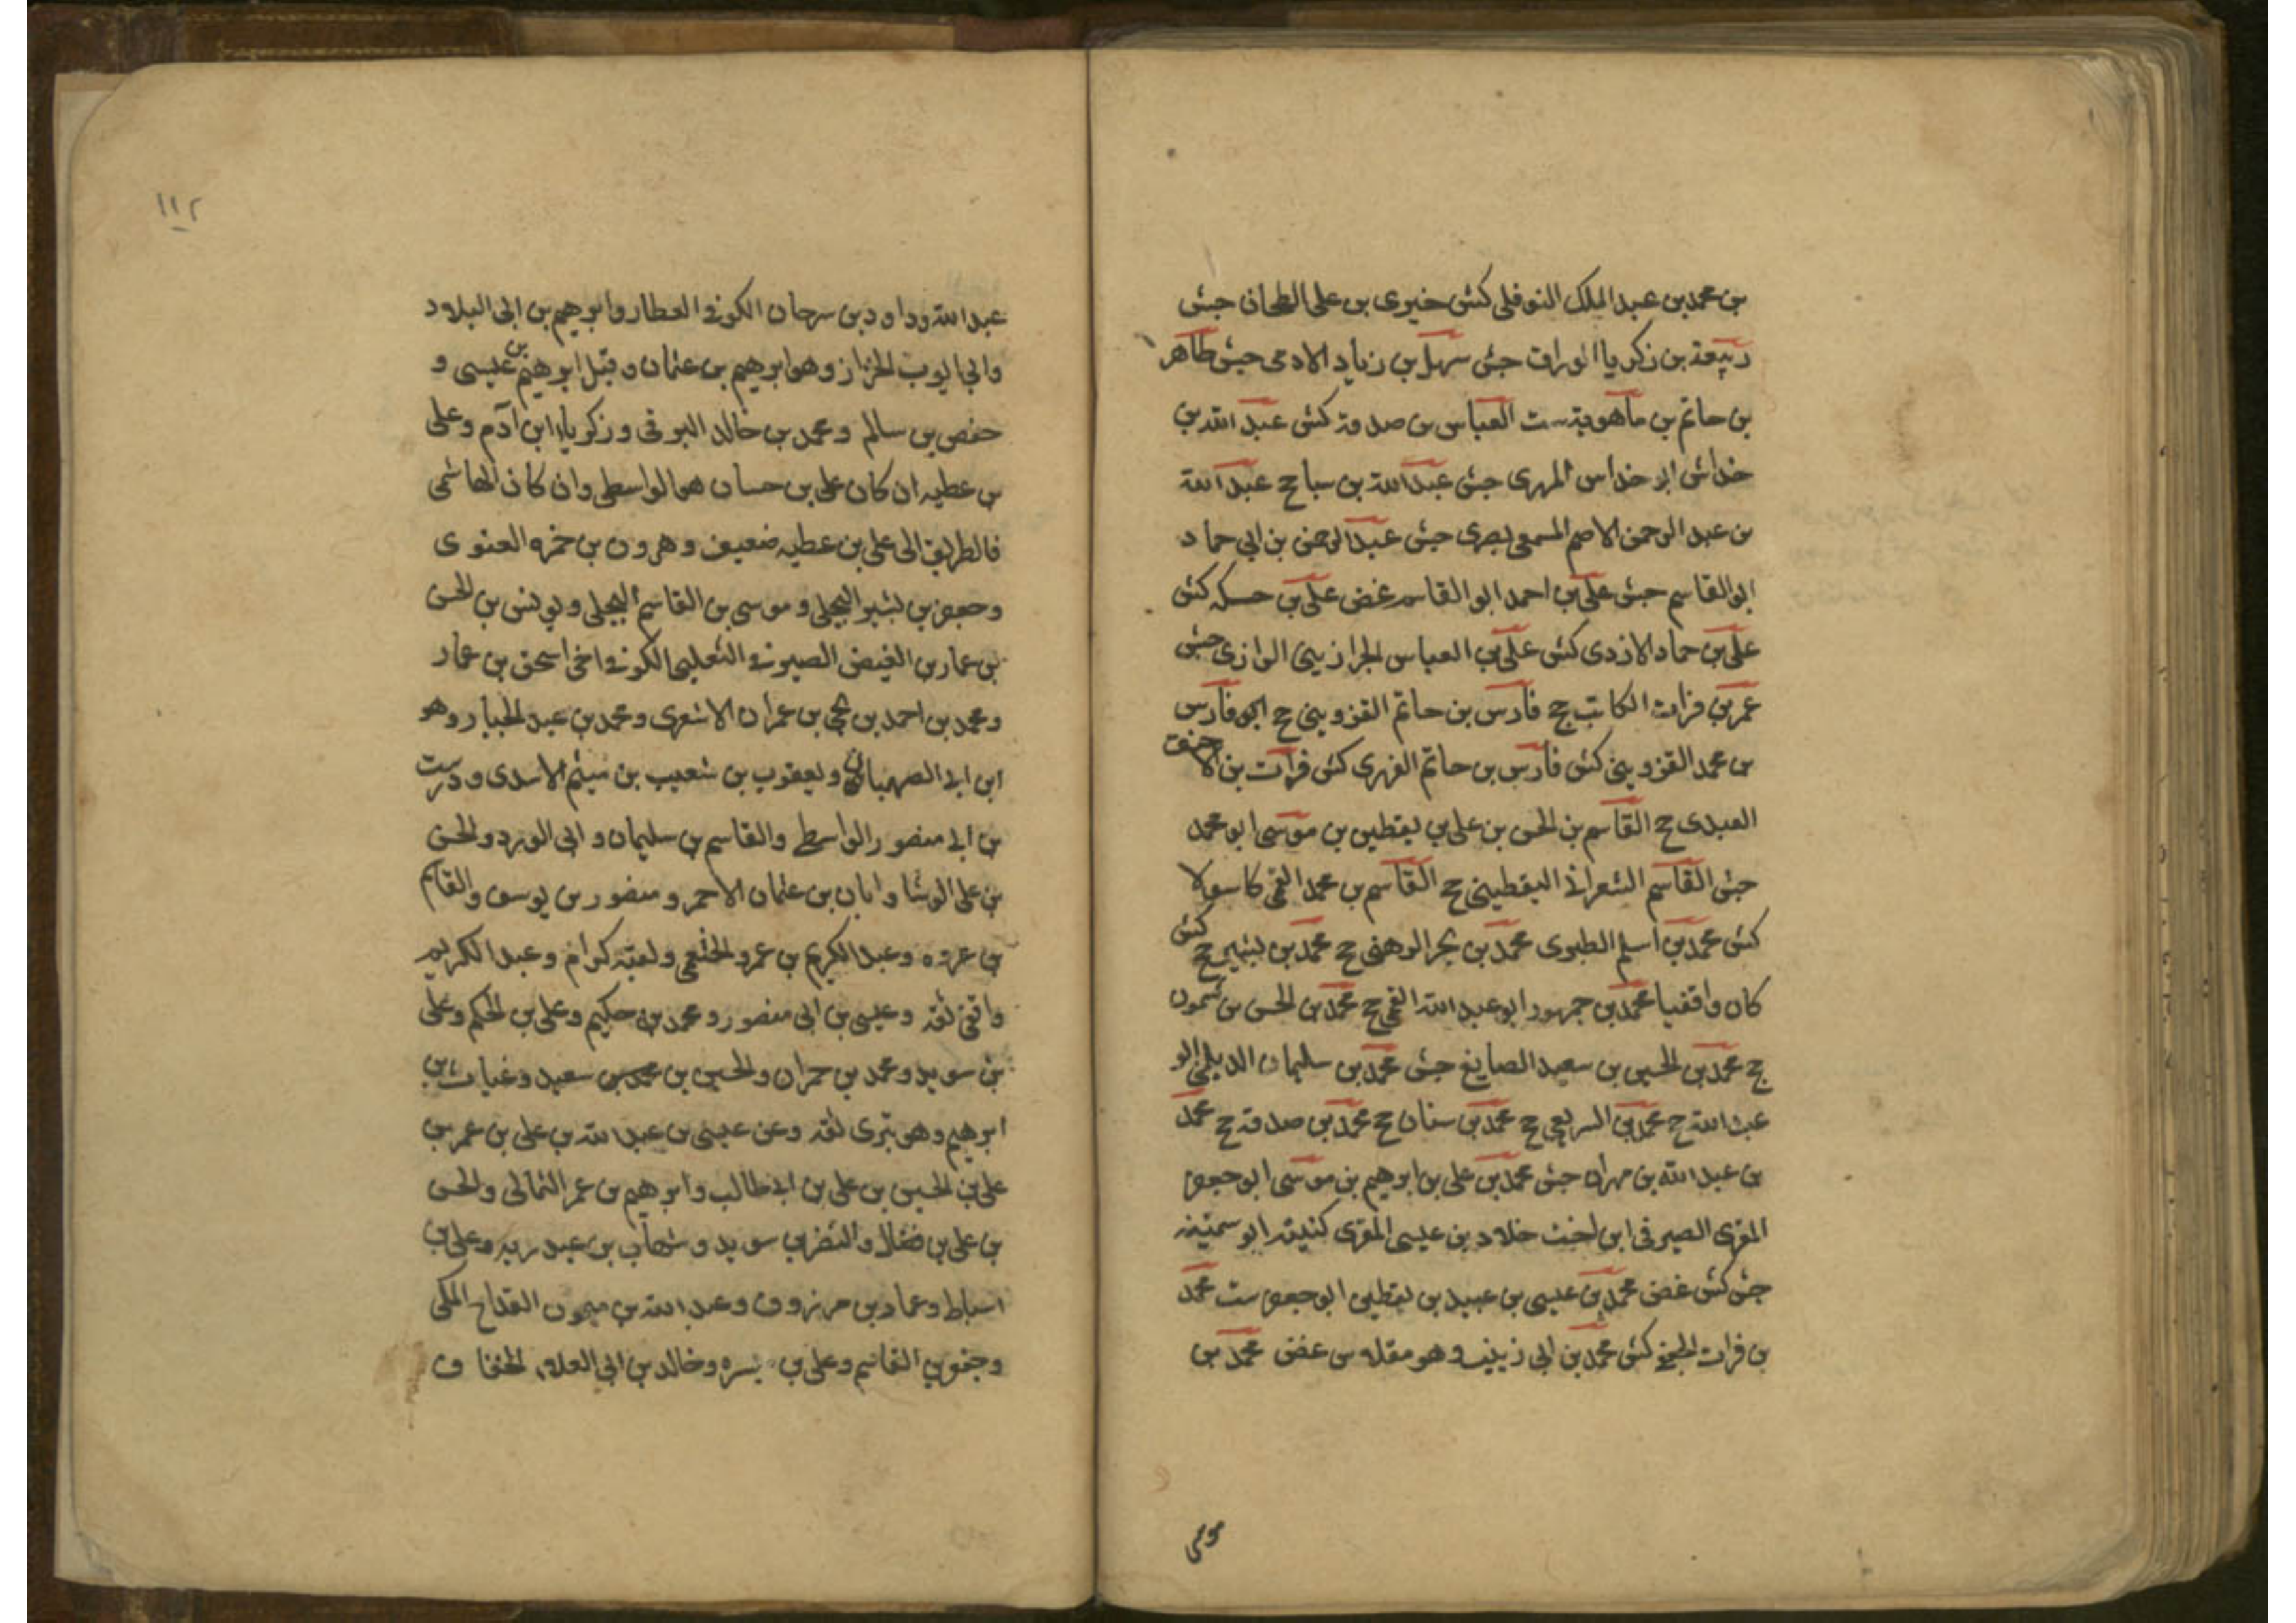 بن محمد بن عبد الملك النوفلي كش خيرى بن على الطحان جش
ربيعة بن زكريا الوراق جش سهل بن زياد الادمى جش طاهر
بن حاتم بن ماهوية ست العباس بن صدقة كش عبد الله بن
خداش ابو خداس المهرى جش عبد الله بن سباح عبد الله
بن عبد الرحمن الاصم المسمعى بصرى جش عبد الرحمن بن ابي حماد
ابو القاسم جش على بن احمد ابو القاسم غض على بن حسكه كش
على بن حماد الازدى كش على بن العباس الجرازينى الرازى جش
عمر بن فرات الكاتب ج فارس بن حاتم القزوينى ج ابو فارس
بن محمد القزوينى كش فارس بن حاتم الفهرى كش فرات بن الاحنف
العبدى ج القاسم بن الحسن بن على بن يقطين بن موسى ابو محمد
جش القاسم الشعرانى اليقطينى ج القاسم بن محمد القمى كاسولا
كش محمد بن اسلم الطبرى محمد بن بحر الرهنى ج محمد بن بشير ج كش
كان واقفيا محمد بن جمهور ابو عبد الله القمى ج محمد بن الحسن بن شمون
ج محمد بن الحسين بن سعيد الصايغ جش محمد بن سليمان الديلمى ابو
عبد الله ج محمد بن السريعى ج محمد بن سنان ج محمد بن صدقة ج محمد
بن عبد الله بن مهران جش محمد بن على بن ابرهيم بن موسى ابو جعفر
المقرى الصيرفى ابن اخت خلاد بن عيسى المقرى كنيته ابو سمينه
جش كش غض محمد بن عيسى بن عبيد بن يقطين ابو جعفر ست محمد
بن فرات الجخ كش محمد بن ابي زينب وهو مقلاس غض محمد بن
موسى
١١٢
عبد الله وداود بن سرحان الكوفى العطار وابرهيم بن ابى البلاد
وابى ايوب الخزاز وهو ابرهيم بن عثمان وقيل ابرهيم بن عيسى و
حفص بن سالم ومحمد بن خالد البرقى وزكريا ابن آدم وعلى
بن عطيه ان كان على بن حسان هو الواسطى وان كان الهاشمى
فالطريق الى على بن عطيه ضعيف وهرون بن حمزه الغنوى
وجعفر بن بشير البجلى وموسى بن القاسم البجلى ويونس بن الحسن
بن عمار بن الفيض الصيرفى التغلبى الكوفى اخى اسحق بن عمار
ومحمد بن احمد بن يحيى بن عمران الاشعرى ومحمد بن عبد الجبار وهو
ابن ابى الصهبان ويعقوب بن شعيب بن ميثم الاسدى ودرست
بن ابى منصور الواسطى والقاسم بن سليمان وابى الورد والحسن
بن على الوشا وابان بن عثمان الاحمر ومنصور بن يونس والقاسم
بن عروه وعبد الكريم بن عمرو الخثعمى ولقبه كرام وعبد الكريم
واقفى ثقه وعيسى بن ابى منصور ومحمد بن حكيم وعلى بن الحكم وعلى
بن سويد ومحمد بن حمران والحسين بن سعيد وغياث بن
ابرهيم وهو بترى ثقه وعن عيسى بن عبد الله بن على بن عمر بن
على بن الحسين بن على بن ابى طالب وابرهيم بن عمر الثمالى والحسن
بن على بن فضال والنضر بن سويد وشهاب بن عبد ربه وعلى بن
اسباط وعمار بن مرزوق وعبد الله بن ميمون القداح المكى
وجعفر بن القاسم وعلى بن ميسره وخالد بن ابى العلاء الخفاف